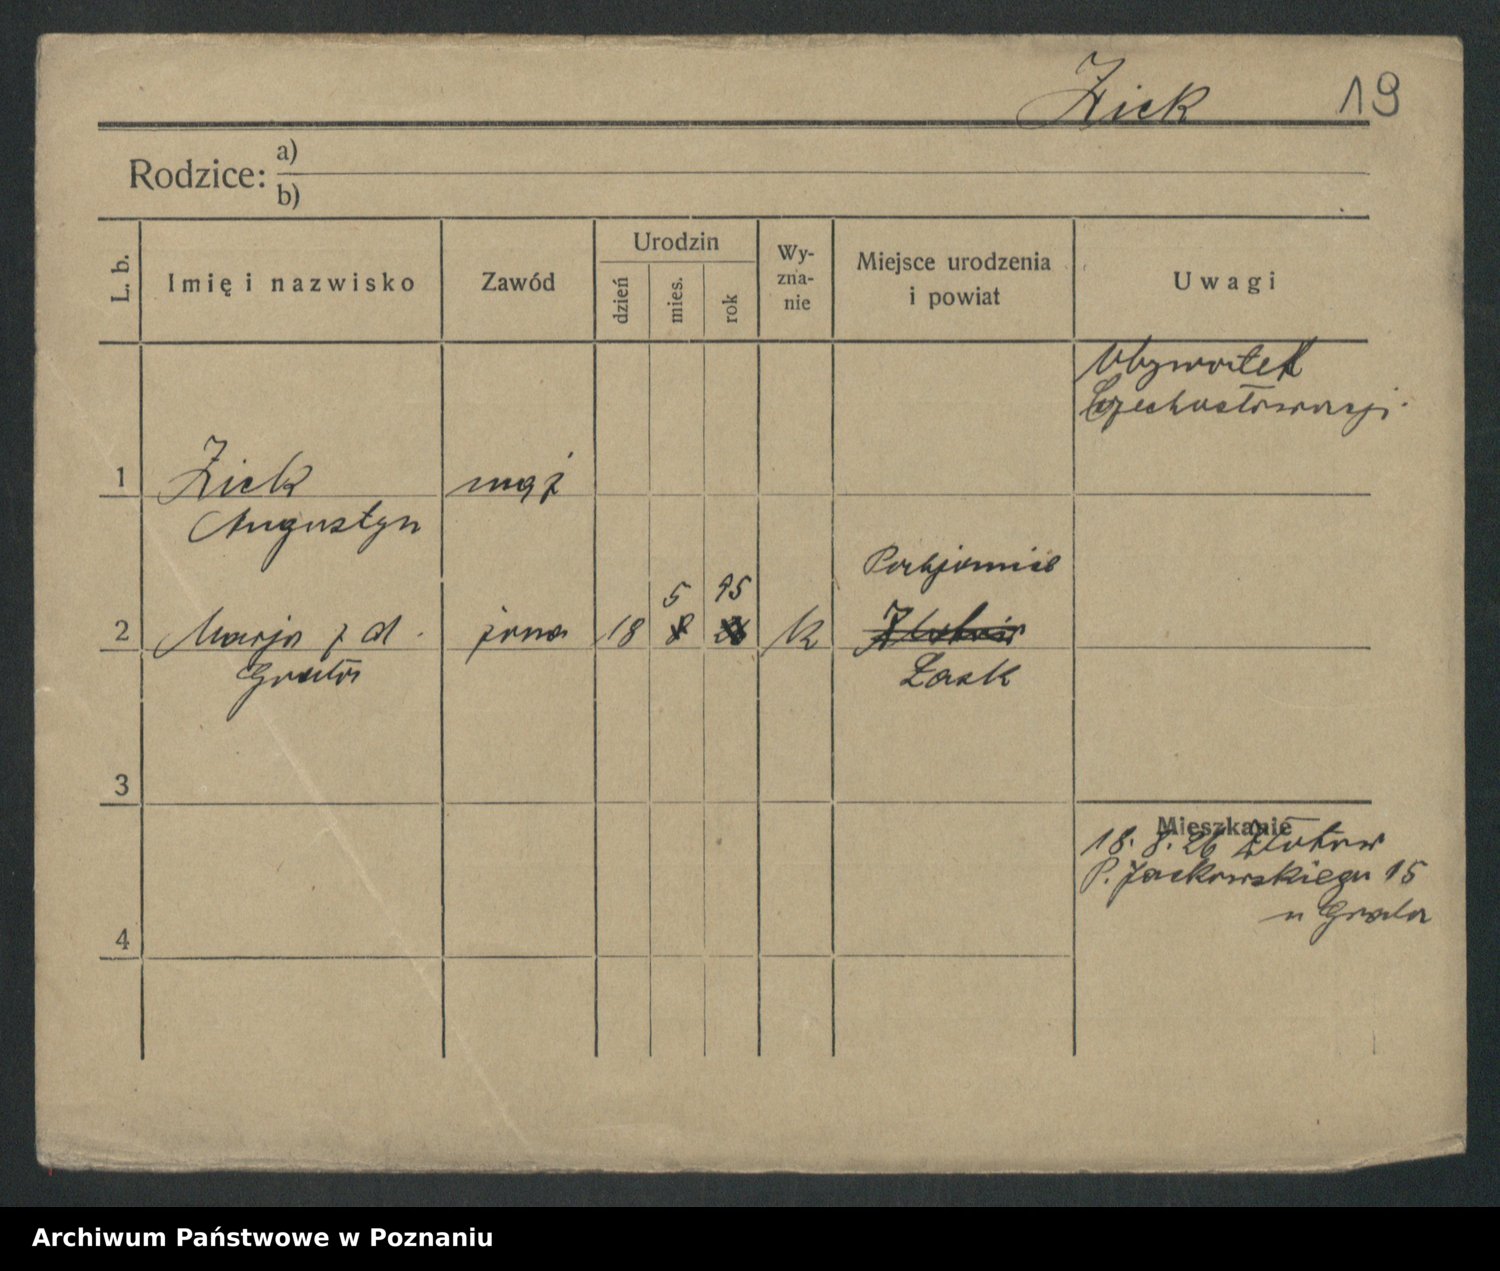 Zick 19
Rodzice: a)
b)
L. b.
Imię i nazwisko
Zawód
Urodzin
dzień
mies.
rok
Wy-
zna-
nie
Miejsce urodzenia
i powiat
Uwagi
Obywatel
Czechosłowacji.
1 Zick mąż
Augustyn
5 95
2 Marja z d. żona 18 8 K
Łask
3
Mieszkanie
18. 8. 26 Złotów
P. Jackowskiego 15
u Grala
4
Archiwum Państwowe w Poznaniu